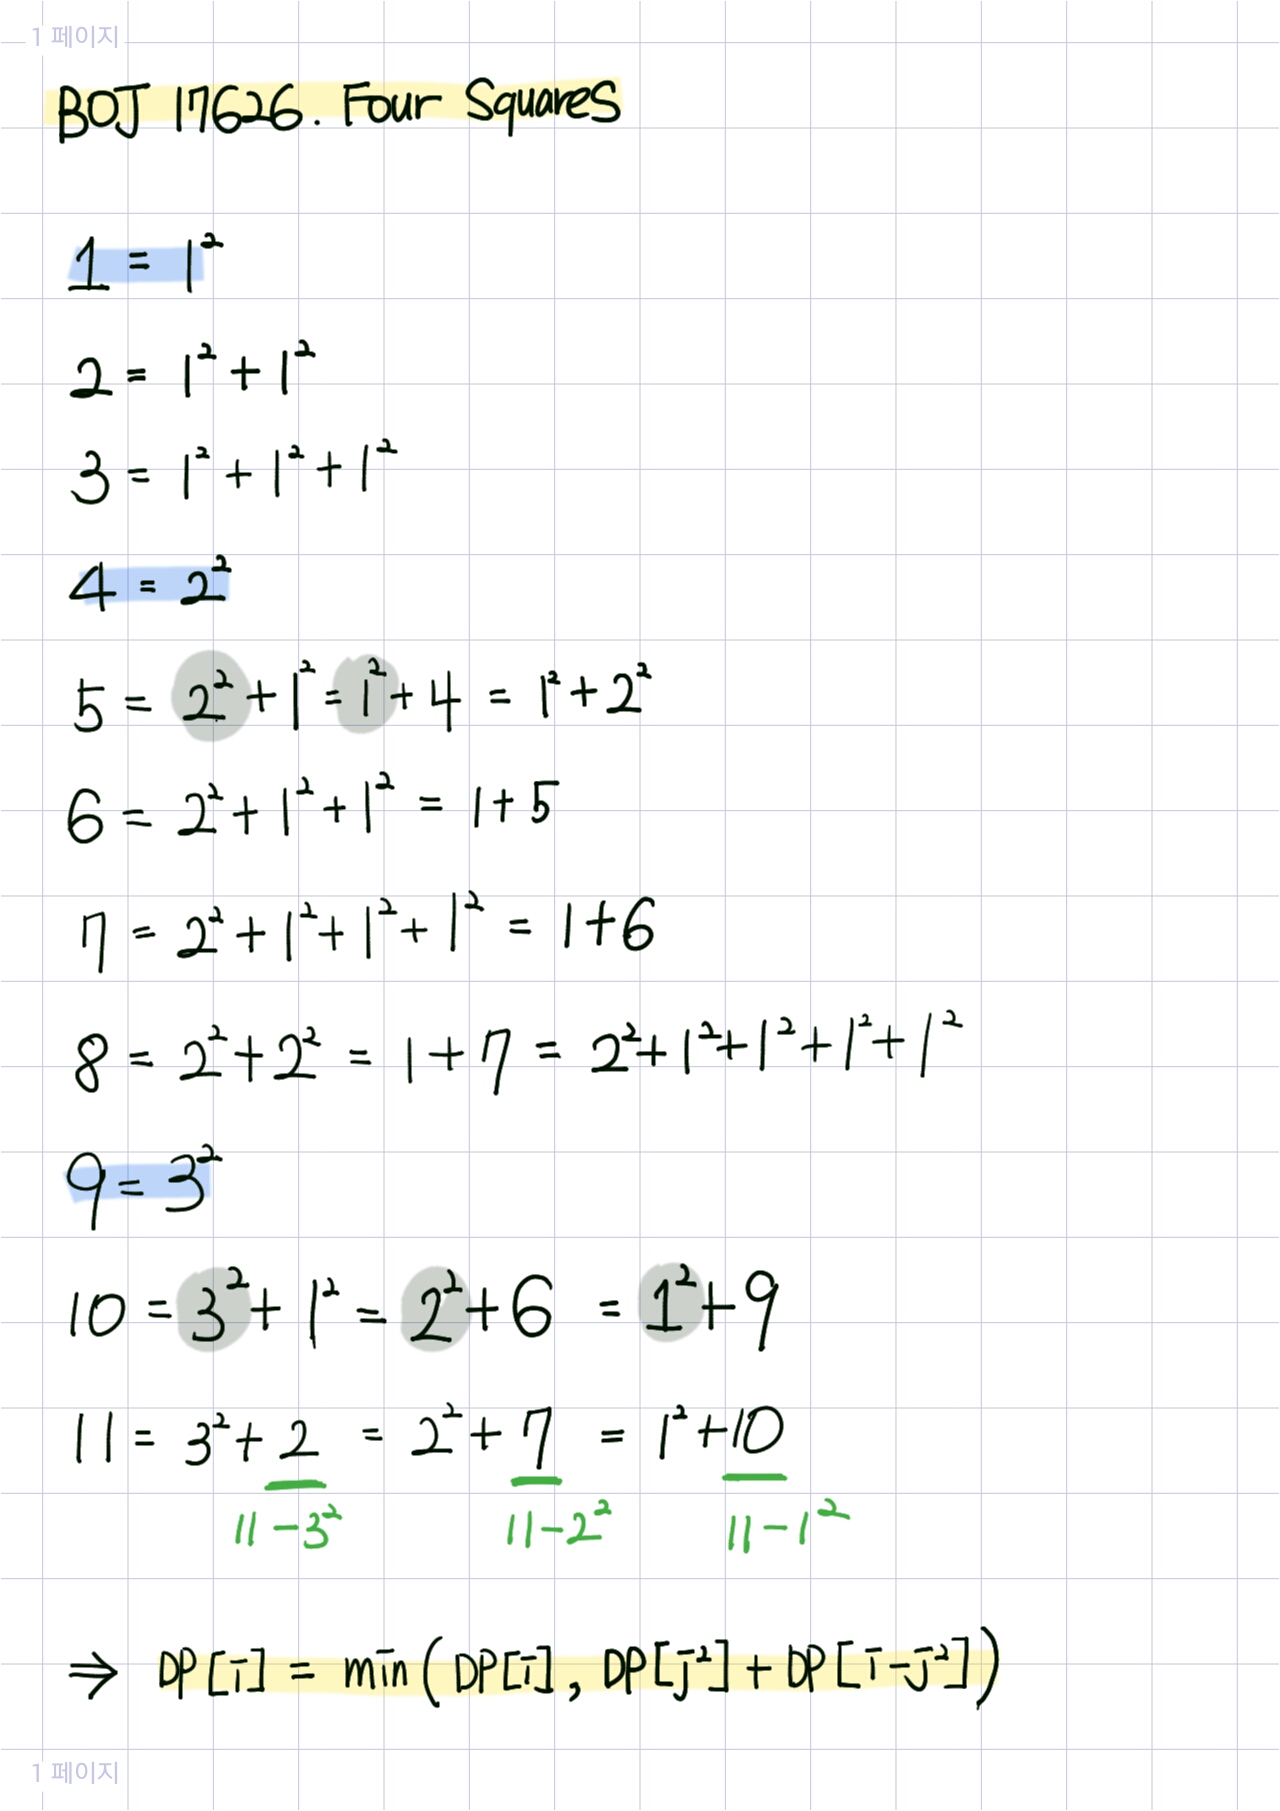 1 페이지
BOJ 17626. Four Squares
1 = 1²
2 = 1² + 1²
3 = 1² + 1² + 1²
4 = 2²
5 = 2² + 1² = 1² + 4 = 1² + 2²
6 = 2² + 1² + 1² = 1 + 5
7 = 2² + 1² + 1² + 1² = 1 + 6
8 = 2² + 2² = 1 + 7 = 2² + 1² + 1² + 1² + 1²
9 = 3²
10 = 3² + 1² = 2² + 6 = 1² + 9
11 = 3² + 2 = 2² + 7 = 1² + 10
11 - 3² 11 - 2² 11 - 1²
⇒ DP[i] = min(DP[i], DP[j²] + DP[i-j²])
1 페이지